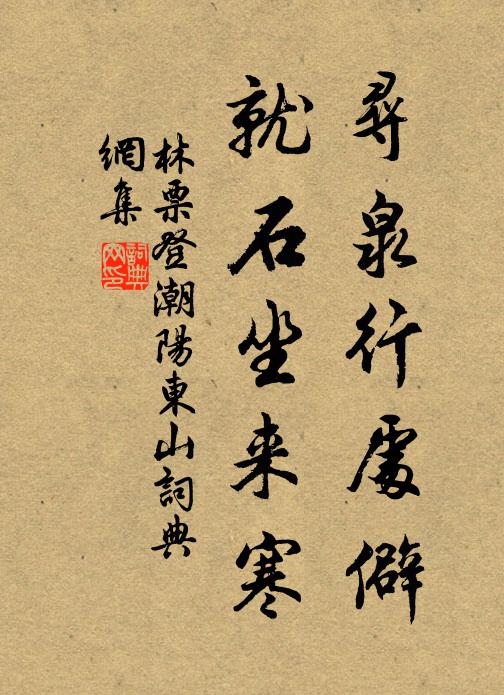 尋泉行處僻
就石坐来寒
林票登潮陽東山詞典
網集
詞典
网印